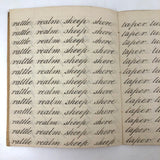 rattle. realm. sheep. shore.
rattle. realm. sheep. shore.
rattle. realm. sheep. shore.
rattle. realm. sheep. shore.
rattle. realm. sheep. shore.
rattle. realm. sheep. shore.
rattle. realm. sheep. shore.
rattle. realm. sheep. shore.
rattle. realm. sheep. shore.
rattle. realm. sheep. shore.
rattle. realm. sheep. shore.
rattle. realm. sheep. shore.
taper.
taper.
taper.
taper.
taper.
taper.
taper.
taper.
taper.
taper.
taper.
taper.